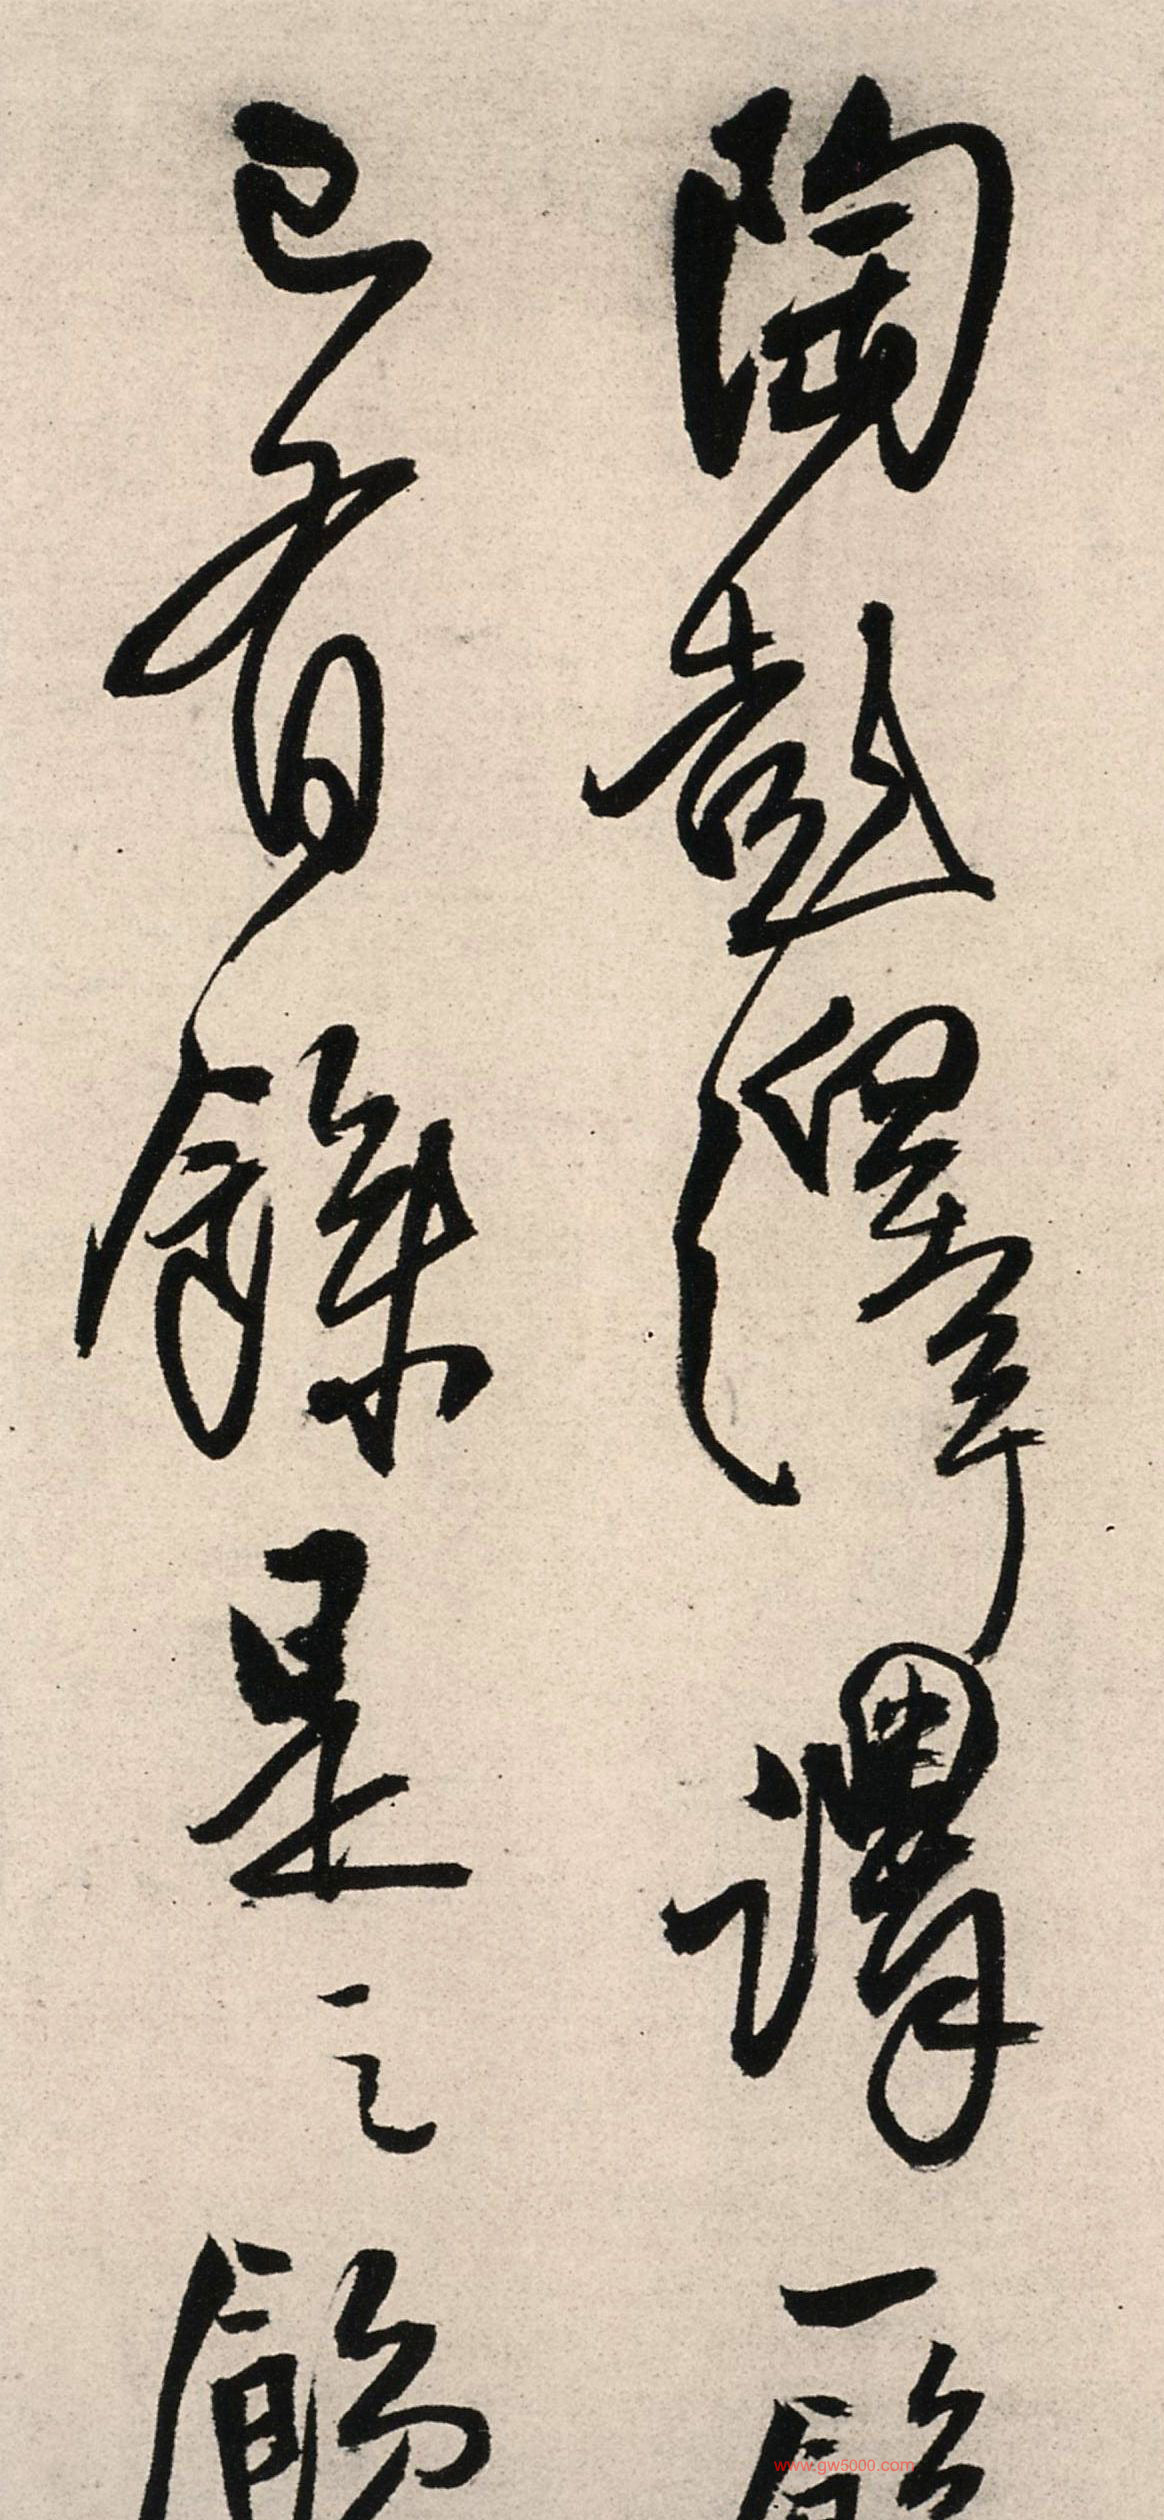 陶彭澤謂一
已有餘是之觴
www.gw5000.com